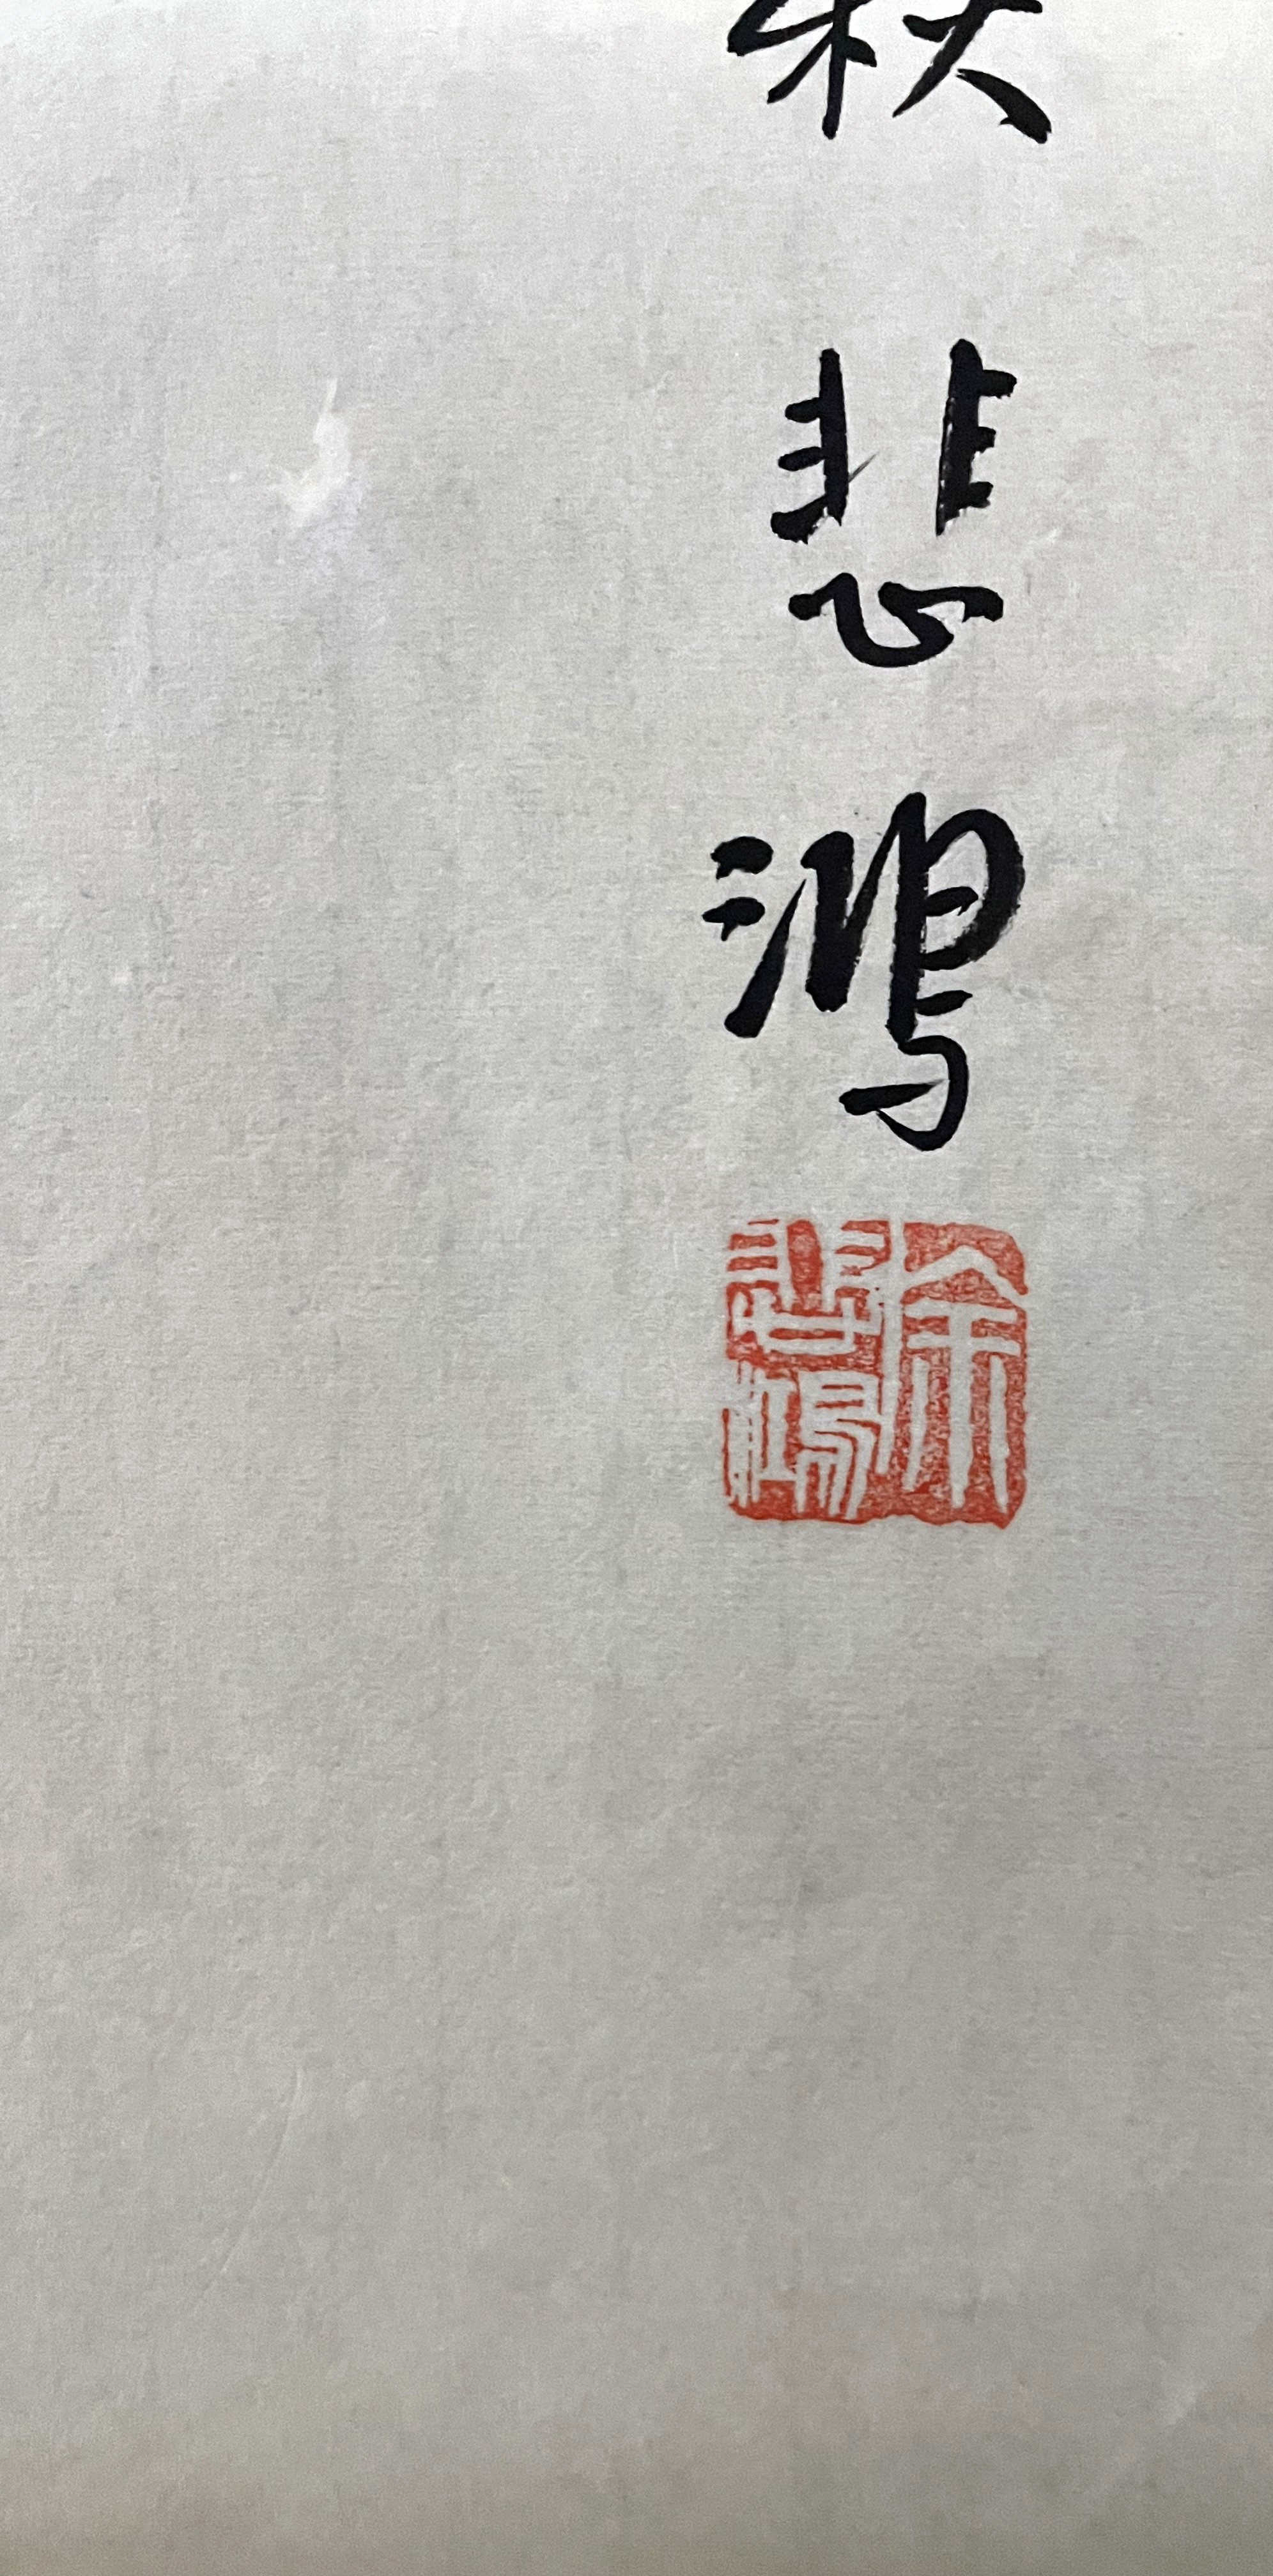 秋悲鴻
徐
悲鴻